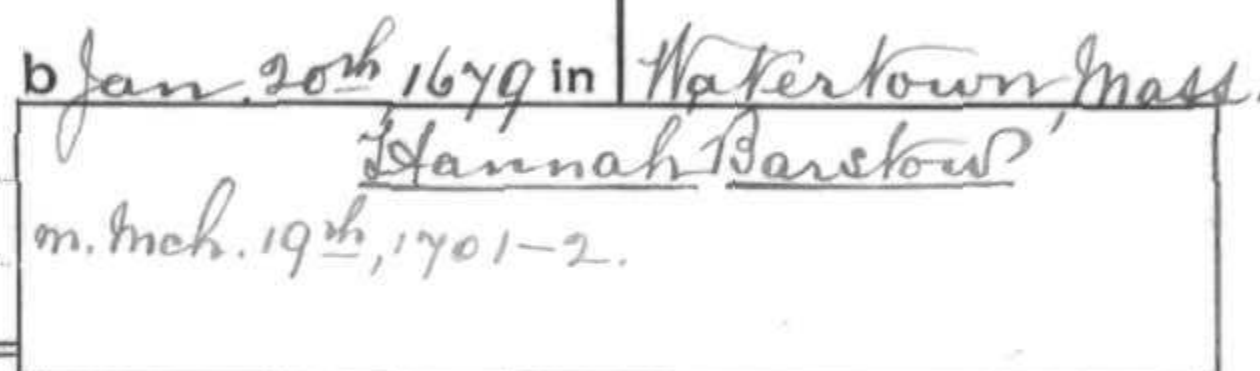 b Jan. 20th 1679 in Watertown, Mass.
Hannah Barstow
m. Mch. 19th, 1701-2.